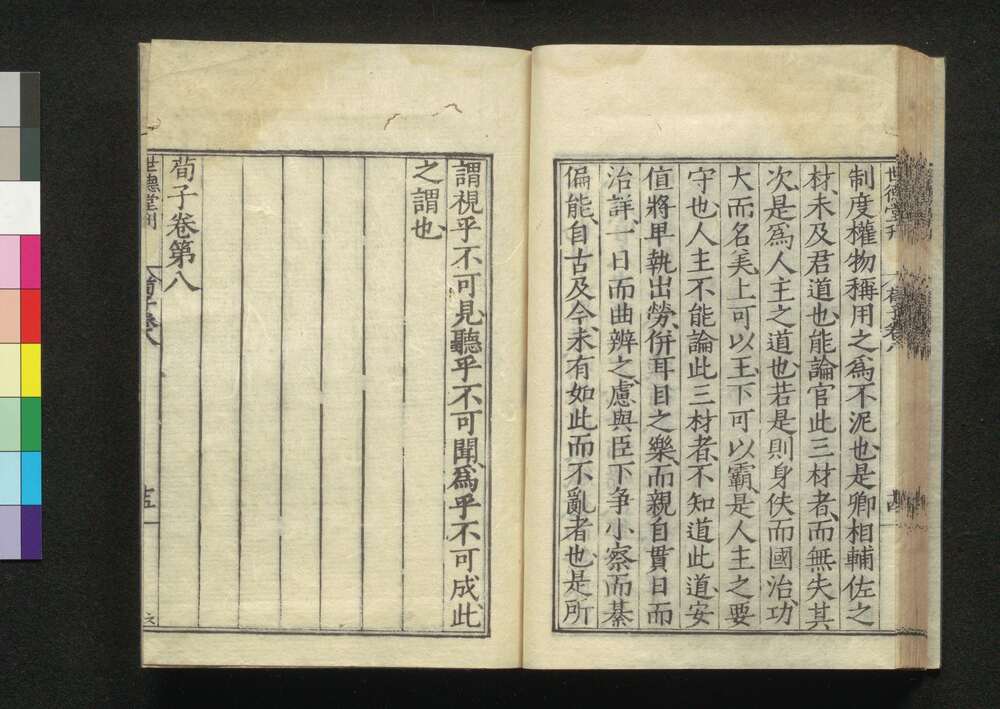 制度權物稱用之為不泥也是卿相輔佐之
材未及君道也能論官此三材者而無失其
次是為人主之道也若是則身佚而國治功
大而名美上可以王下可以霸是人主之要
守也人主不能論此三材者不知道此道安
值將卑執出勞併耳目之樂而親自貫日而
治詳一日而曲辨之慮與臣下爭小察而綦
偏能自古及今未有如此而不亂者也是所
謂視乎不可見聽乎不可聞為乎不可成此
之謂也
荀子卷第八
世德堂刊